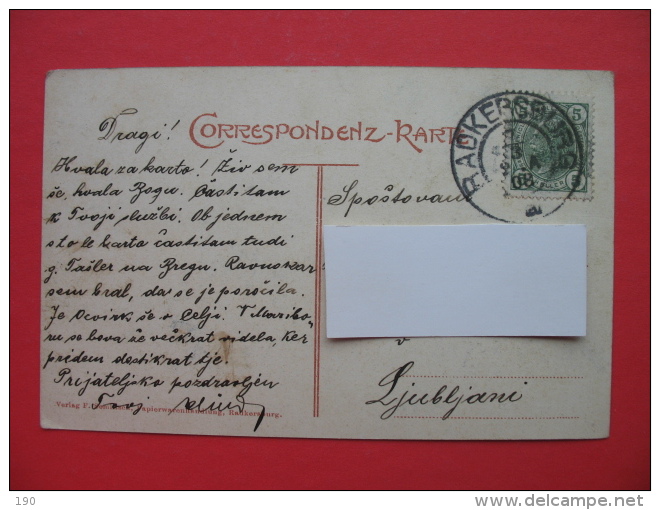 CORRESPONDENZ-KART
RADKERSBURG
a
5
5
Dragi!
Hvala za karto! Živ sem
še, hvala Bogu. Častitam
k Tvoji službi. Ob jednem
s to le karto častitam tudi
g. Tašler na Bregu. Ravnokar
sem bral, da se je poročila.
Je Ocvirk še v Celji. V Maribo-
ru se bova še večkrat videla, ker
pridem destikrat tje.
Prijateljsko pozdravljen
Tvoj
Verlag Papierwarenhandlung, Radkersburg.
Spoštovani
v
Ljubljani
190
delcampe.net